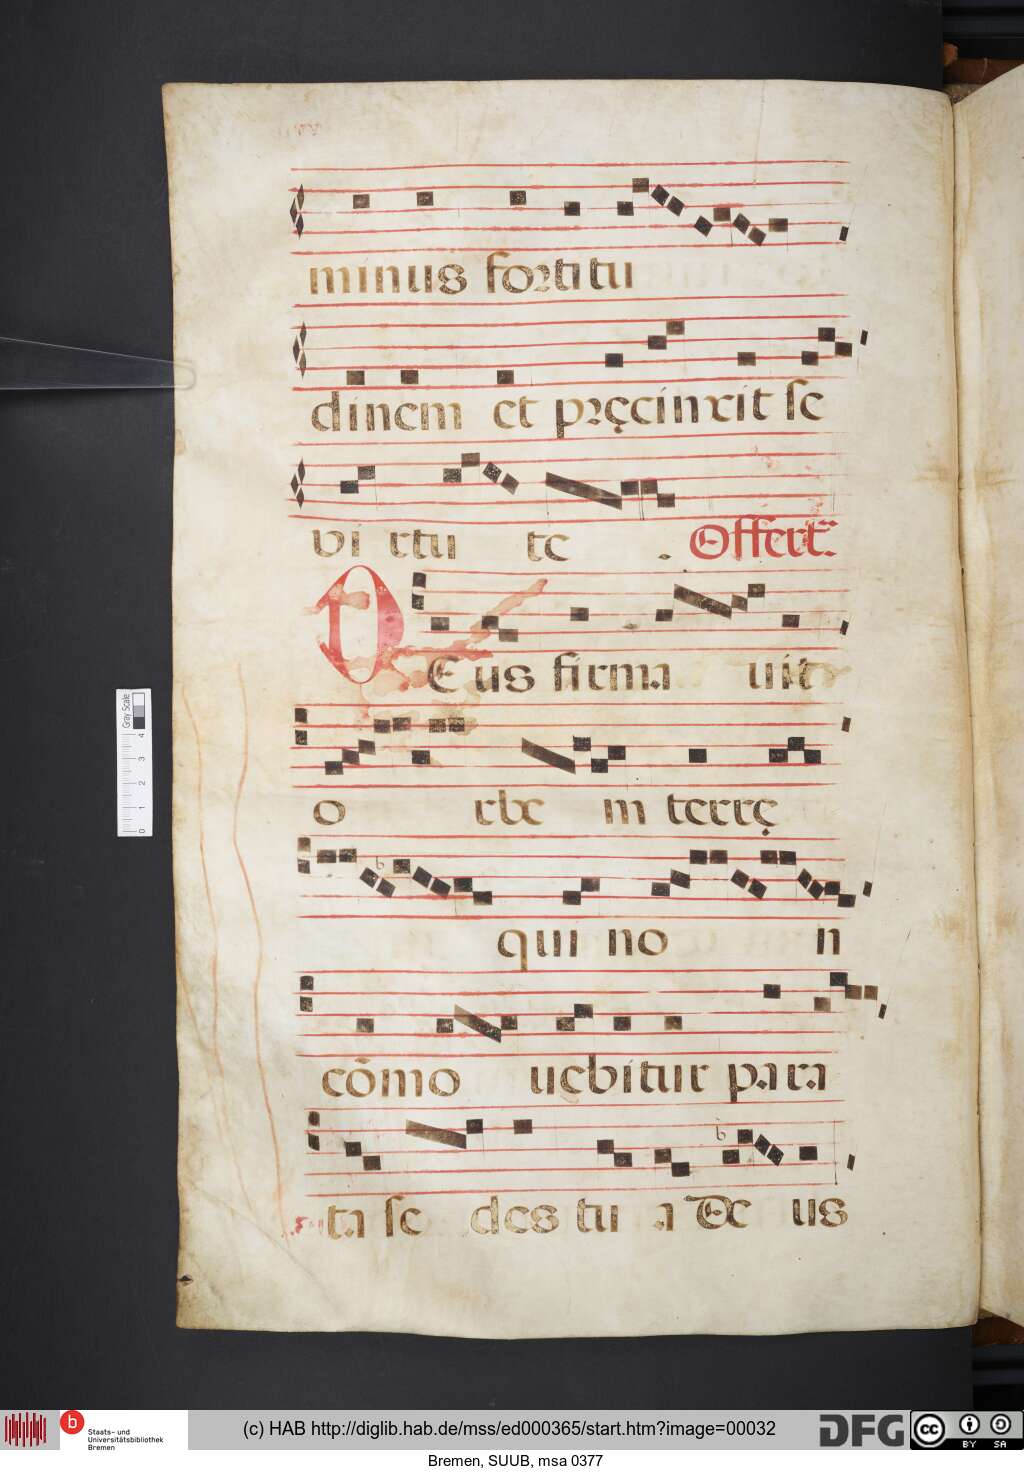 minus fortitu
dinem et pręcinxit se
virtute. Offert.
DEus firmavit
orbe in terrę
qui non
cõmovebitur para
ta sedes tua Deus
Gray Scale
0 1 2 3 4
Staats- und
Universitätsbibliothek
Bremen
(c) HAB http://diglib.hab.de/mss/ed000365/start.htm?image=00032
DFG
cc BY SA
Bremen, SUUB, msa 0377